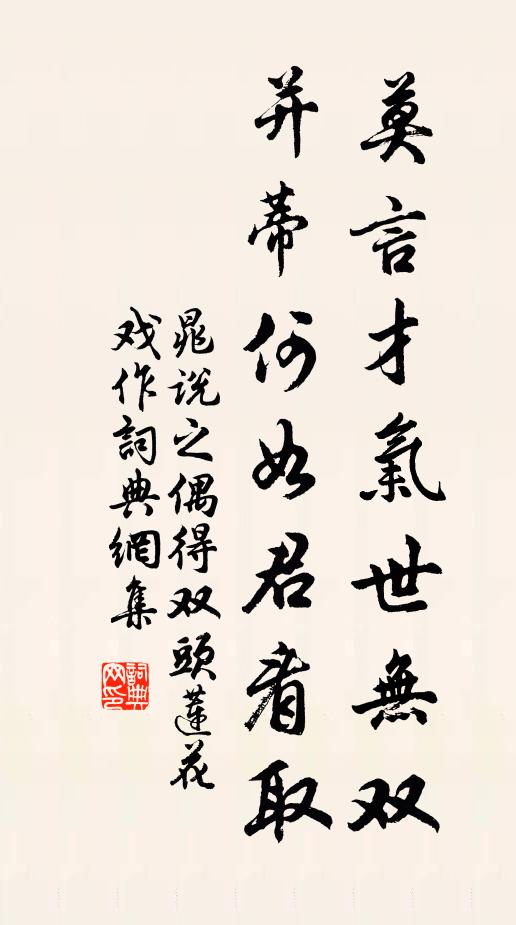 莫言才氣世無双
并蒂何如君看取
晁説之偶得双頭蓮花
戏作詞典網集
詞典网印